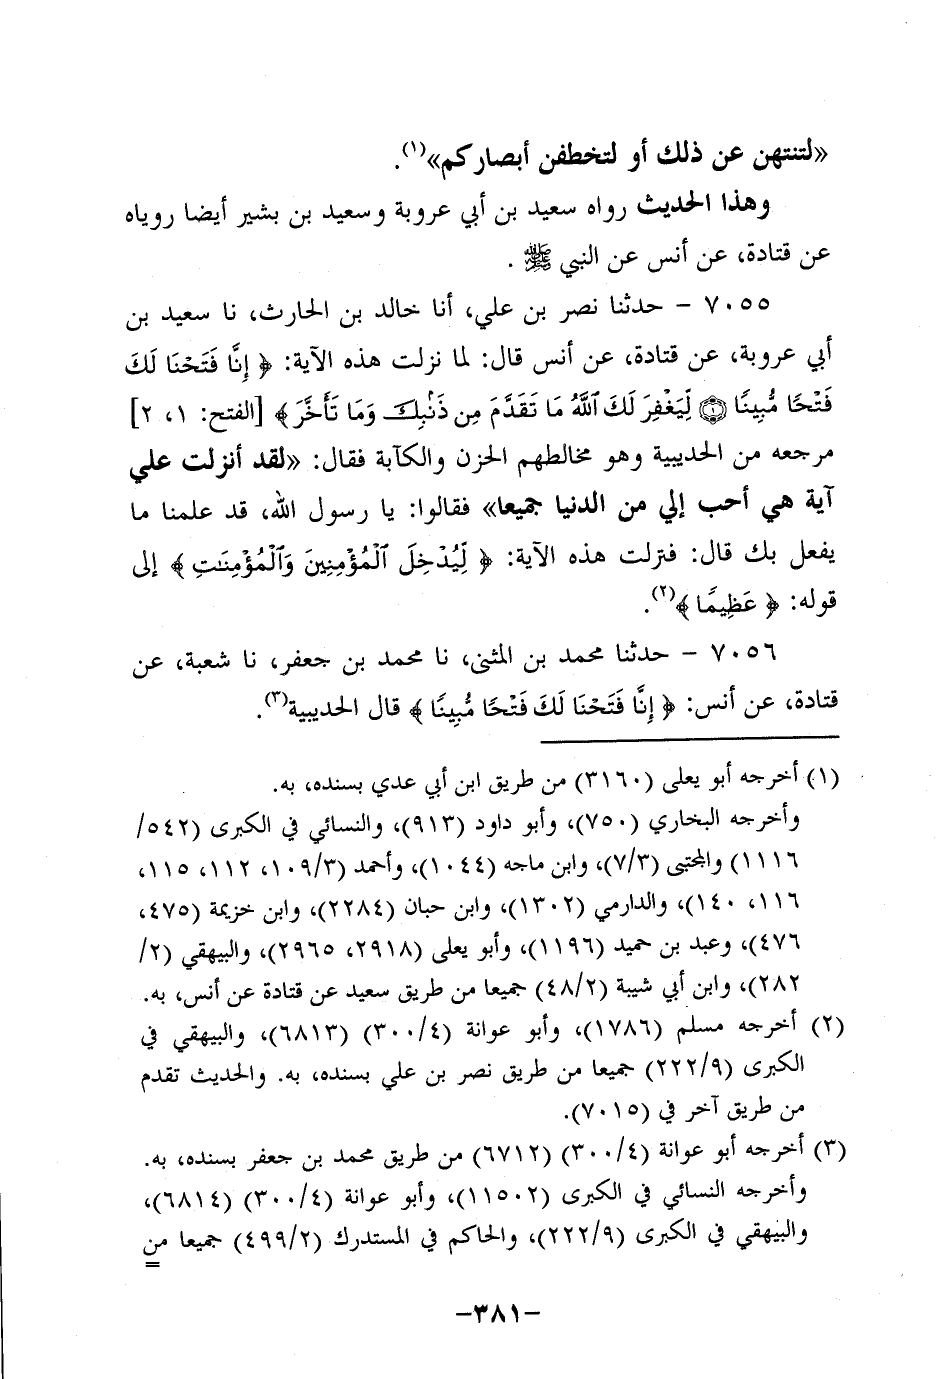 «لتنتهن عن ذلك أو لتخطفن أبصاركم»(١).
وهذا الحديث رواه سعيد بن أبي عروبة وسعيد بن بشير أيضا روياه
عن قتادة، عن أنس عن النبي ﷺ .
٧٠٥٥ – حدثنا نصر بن علي، أنا خالد بن الحارث، نا سعيد بن
أبي عروبة، عن قتادة، عن أنس قال: لما نزلت هذه الآية: ﴿ إِنَّا فَتَحْنَا لَكَ
فَتْحًا مُّبِينًا ۝١ لِّيَغْفِرَ لَكَ ٱللَّهُ مَا تَقَدَّمَ مِن ذَنۢبِكَ وَمَا تَأَخَّرَ ﴾ [الفتح: ١، ٢]
مرجعه من الحديبية وهو مخالطهم الحزن والكآبة فقال: «لقد أنزلت علي
آية هي أحب إلي من الدنيا جميعا» فقالوا: يا رسول الله، قد علمنا ما
يفعل بك قال: فنزلت هذه الآية: ﴿ لِّيُدْخِلَ ٱلْمُؤْمِنِينَ وَٱلْمُؤْمِنَٰتِ ﴾ إلى
قوله: ﴿ عَظِيمًا ﴾(٢).
٧٠٥٦ – حدثنا محمد بن المثنى، نا محمد بن جعفر، نا شعبة، عن
قتادة، عن أنس: ﴿ إِنَّا فَتَحْنَا لَكَ فَتْحًا مُّبِينًا ﴾ قال الحديبية(٣).
(١) أخرجه أبو يعلى (٣١٦٠) من طريق ابن أبي عدي بسنده، به.
وأخرجه البخاري (٧٥٠)، وأبو داود (٩١٣)، والنسائي في الكبرى (٥٤٢/
١١١٦) والمجتبى (٧/٣)، وابن ماجه (١٠٤٤)، وأحمد (١٠٩/٣، ١١٢، ١١٥،
١١٦، ١٤٠)، والدارمي (١٣٠٢)، وابن حبان (٢٢٨٤)، وابن خزيمة (٤٧٥،
٤٧٦)، وعبد بن حميد (١١٩٦)، وأبو يعلى (٢٩١٨، ٢٩٦٥)، والبيهقي (٢/
٢٨٢)، وابن أبي شيبة (٤٨/٢) جميعا من طريق سعيد عن قتادة عن أنس، به.
(٢) أخرجه مسلم (١٧٨٦)، وأبو عوانة (٣٠٠/٤) (٦٨١٣)، والبيهقي في
الكبرى (٢٢٢/٩) جميعا من طريق نصر بن علي بسنده، به. والحديث تقدم
من طريق آخر في (٧٠١٥).
(٣) أخرجه أبو عوانة (٣٠٠/٤) (٦٧١٢) من طريق محمد بن جعفر بسنده، به.
وأخرجه النسائي في الكبرى (١١٥٠٢)، وأبو عوانة (٣٠٠/٤) (٦٨١٤)،
والبيهقي في الكبرى (٢٢٢/٩)، والحاكم في المستدرك (٤٩٩/٢) جميعا من
=
–٣٨١–